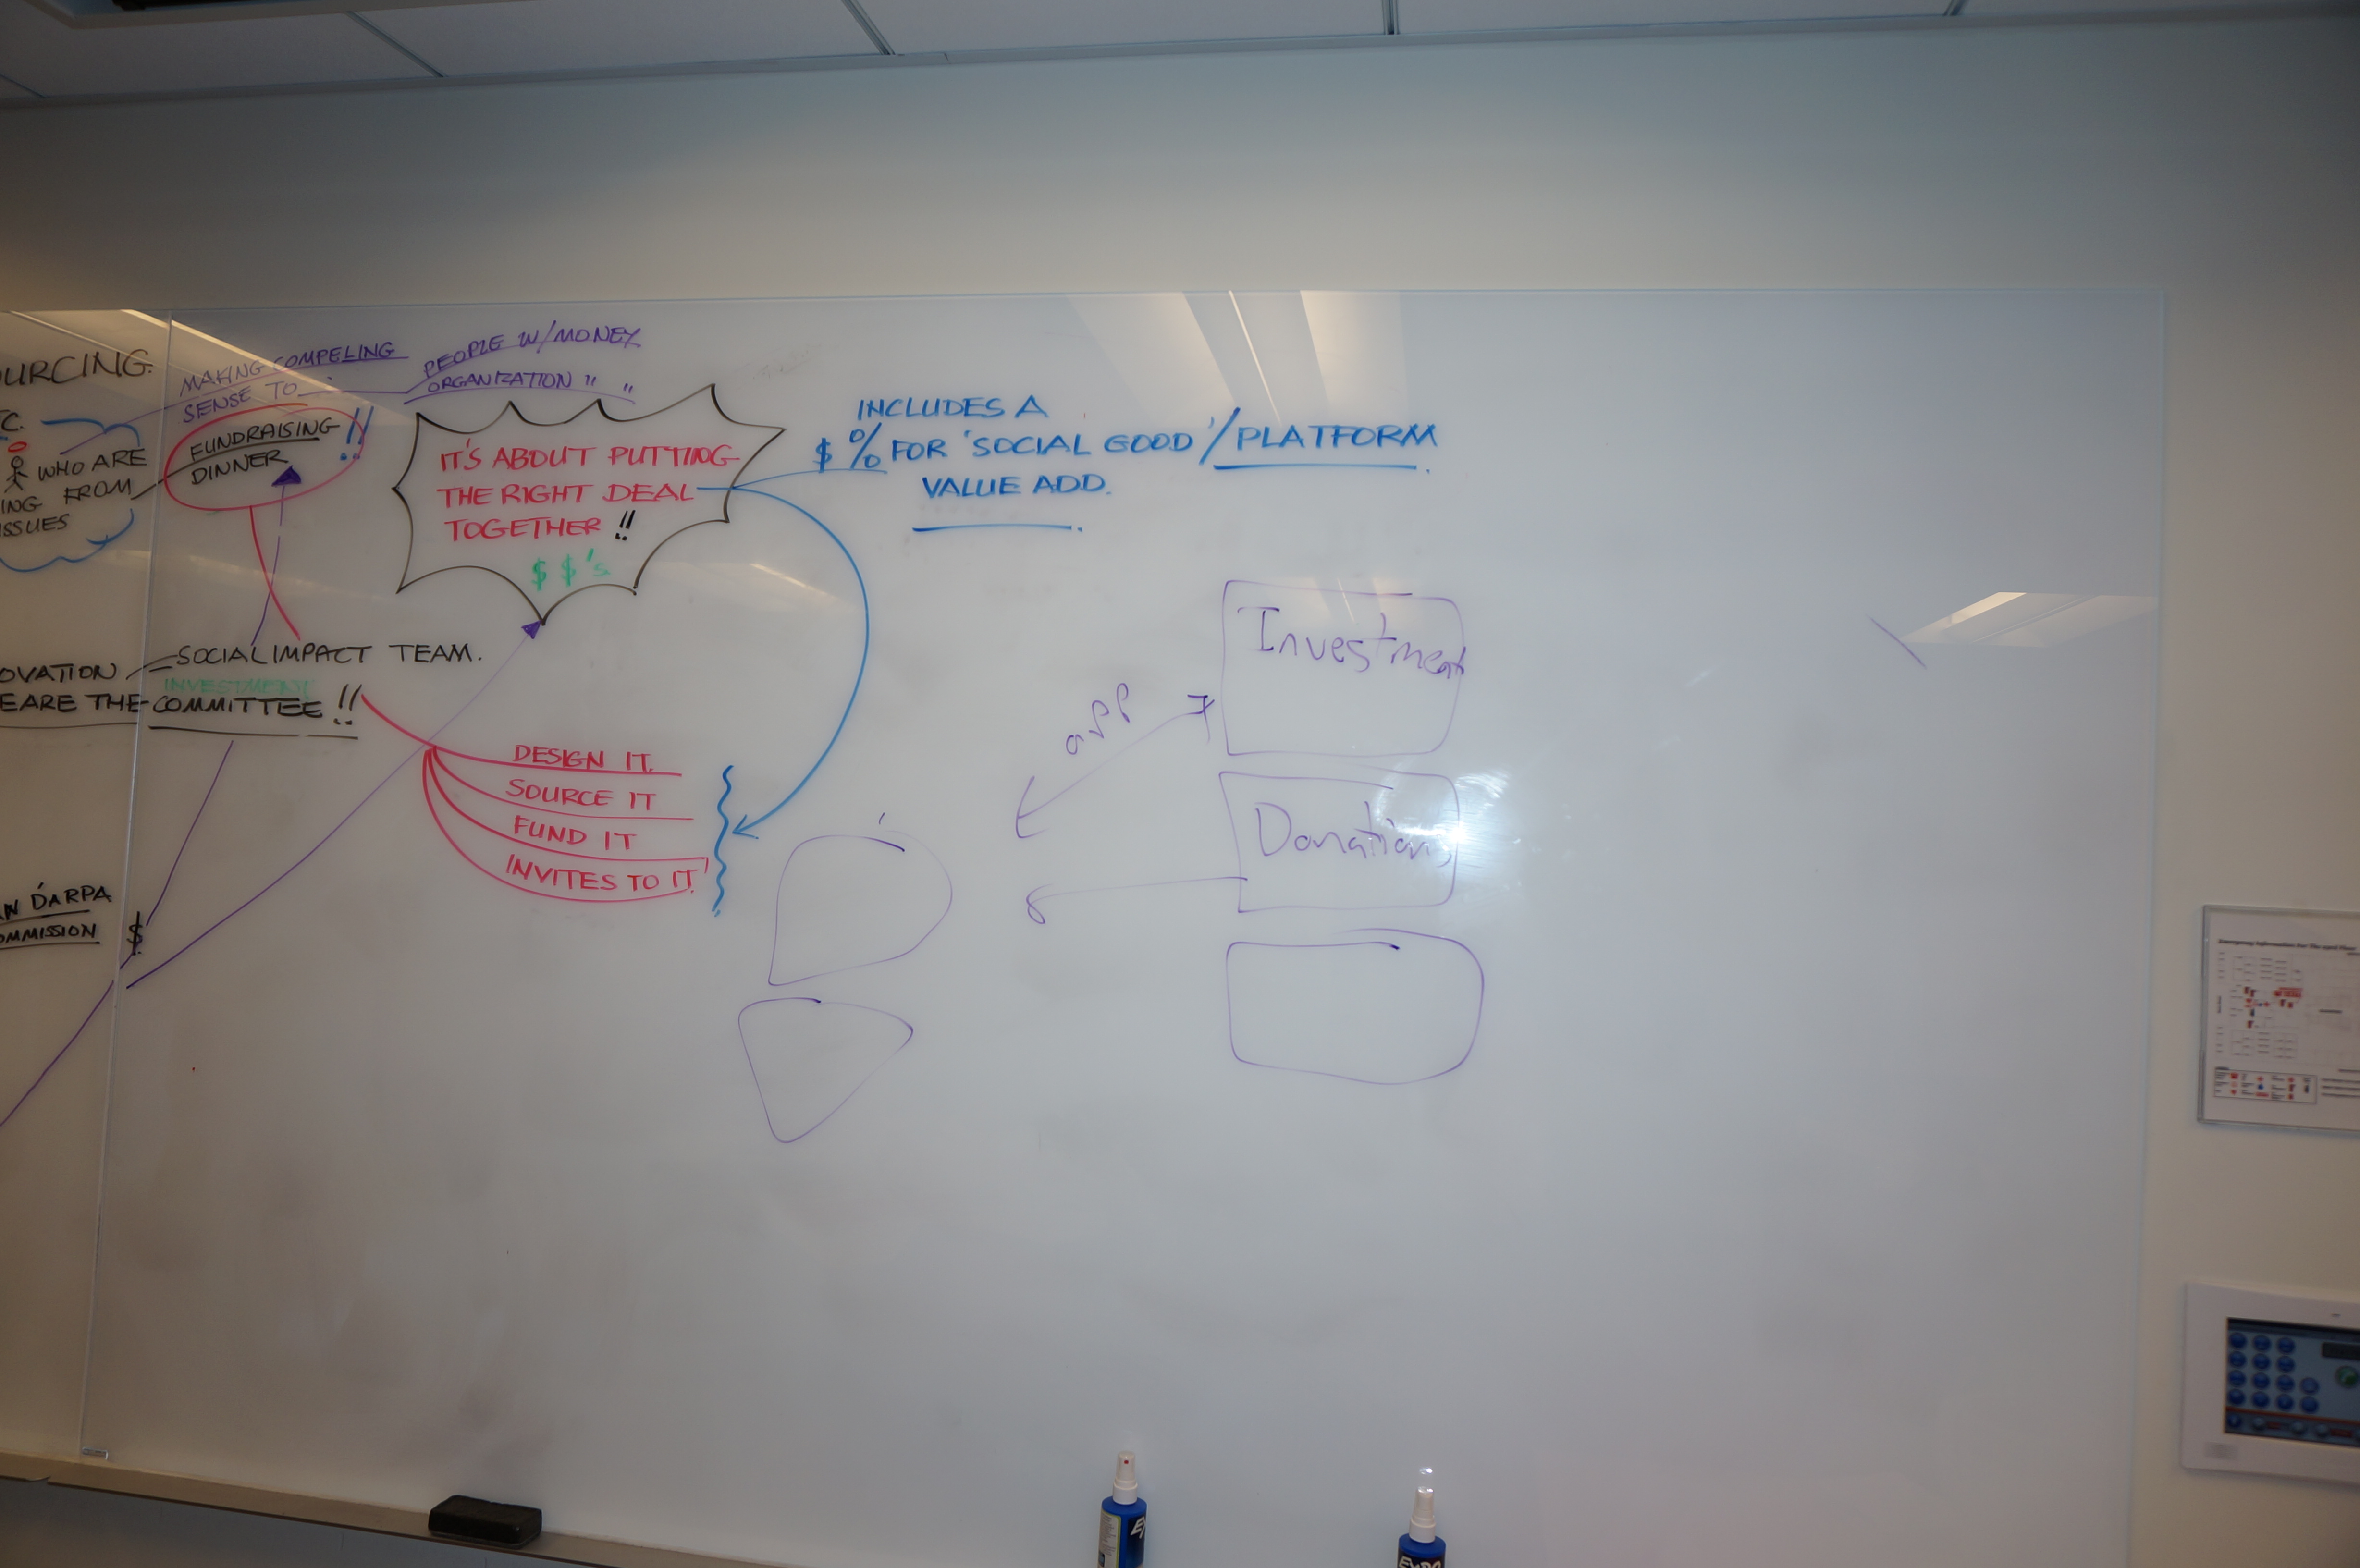 OURCING.
C.
WHO ARE
ING FROM
ISSUES
MAKING COMPELING
SENSE TO
PEOPLE W/MONEY
ORGANIZATION " "
FUNDRAISING !!
DINNER
IT'S ABOUT PUTTING
THE RIGHT DEAL
TOGETHER !!
$ $'s
INCLUDES A
$ % FOR 'SOCIAL GOOD'/PLATFORM
VALUE ADD.
OVATION
SOCIAL IMPACT TEAM.
INVESTMENT
EARE THE COMMITTEE !!
DESIGN IT.
SOURCE IT
FUND IT
INVITES TO IT
AN DARPA
OMMISSION
$
app
Investment
Donations
Emergency Information For The 23rd Floor
EXPO